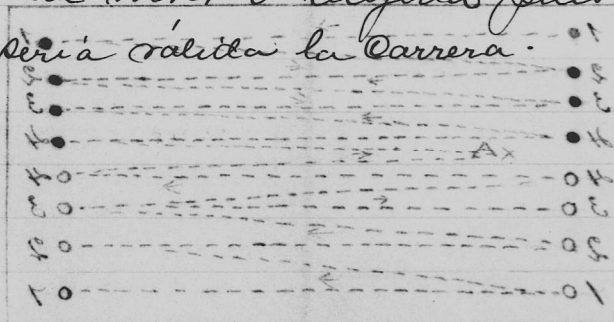 sería válida la Carrera.
1 1
2 2
3 3
4 4
A x
4 4
3 3
2 2
1 1